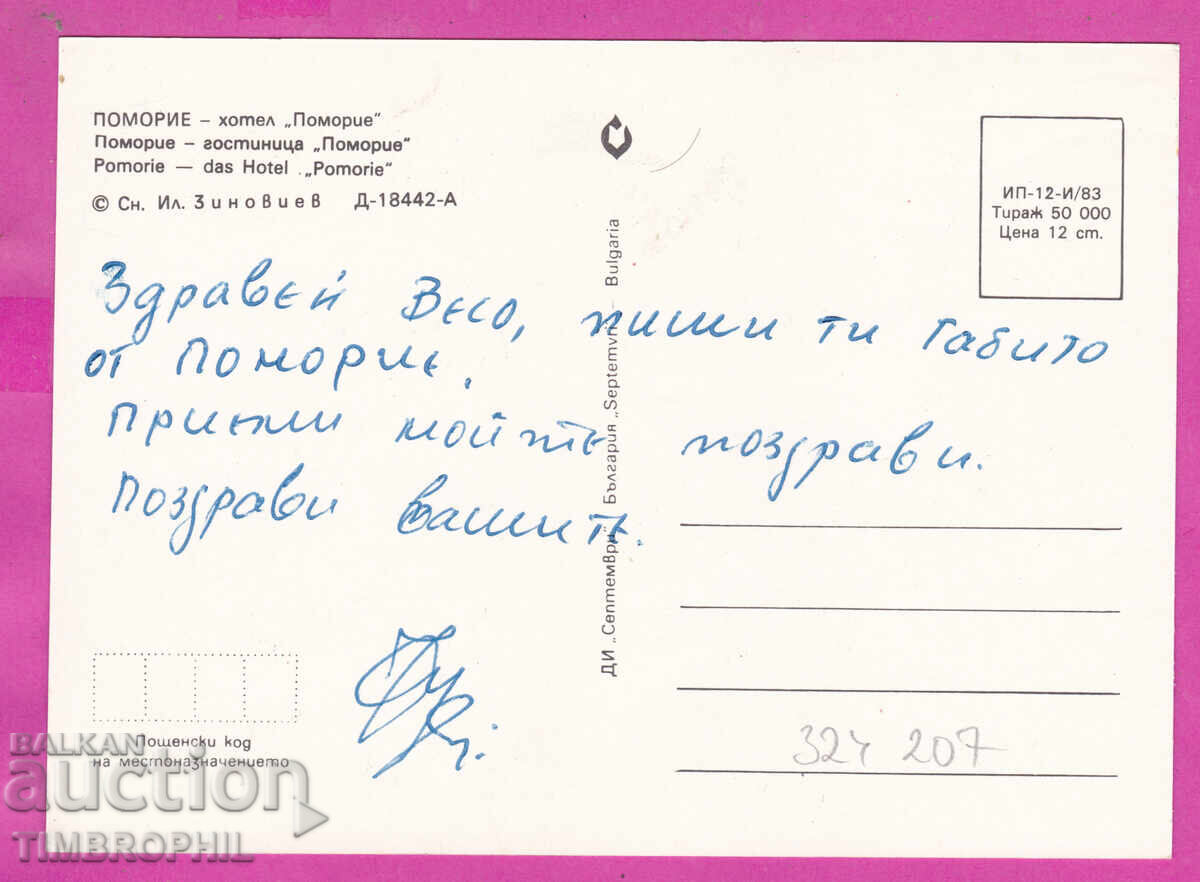 ПОМОРИЕ – хотел „Поморие“
Поморие – гостиница „Поморие“
Pomorie — das Hotel „Pomorie“
© Сн. Ил. Зиновиев Д-18442-А
ИП-12-И/83
Тираж 50 000
Цена 12 ст.
Здравей Весо, пиши ти Габито
от Поморие.
Приеми мойте поздрави.
Поздрави вашите.
ДИ „Септември“ България „Septemvri“ Bulgaria
Пощенски код
на местоназначението
324 207
BALKAN
auction
TIMBROPHIL